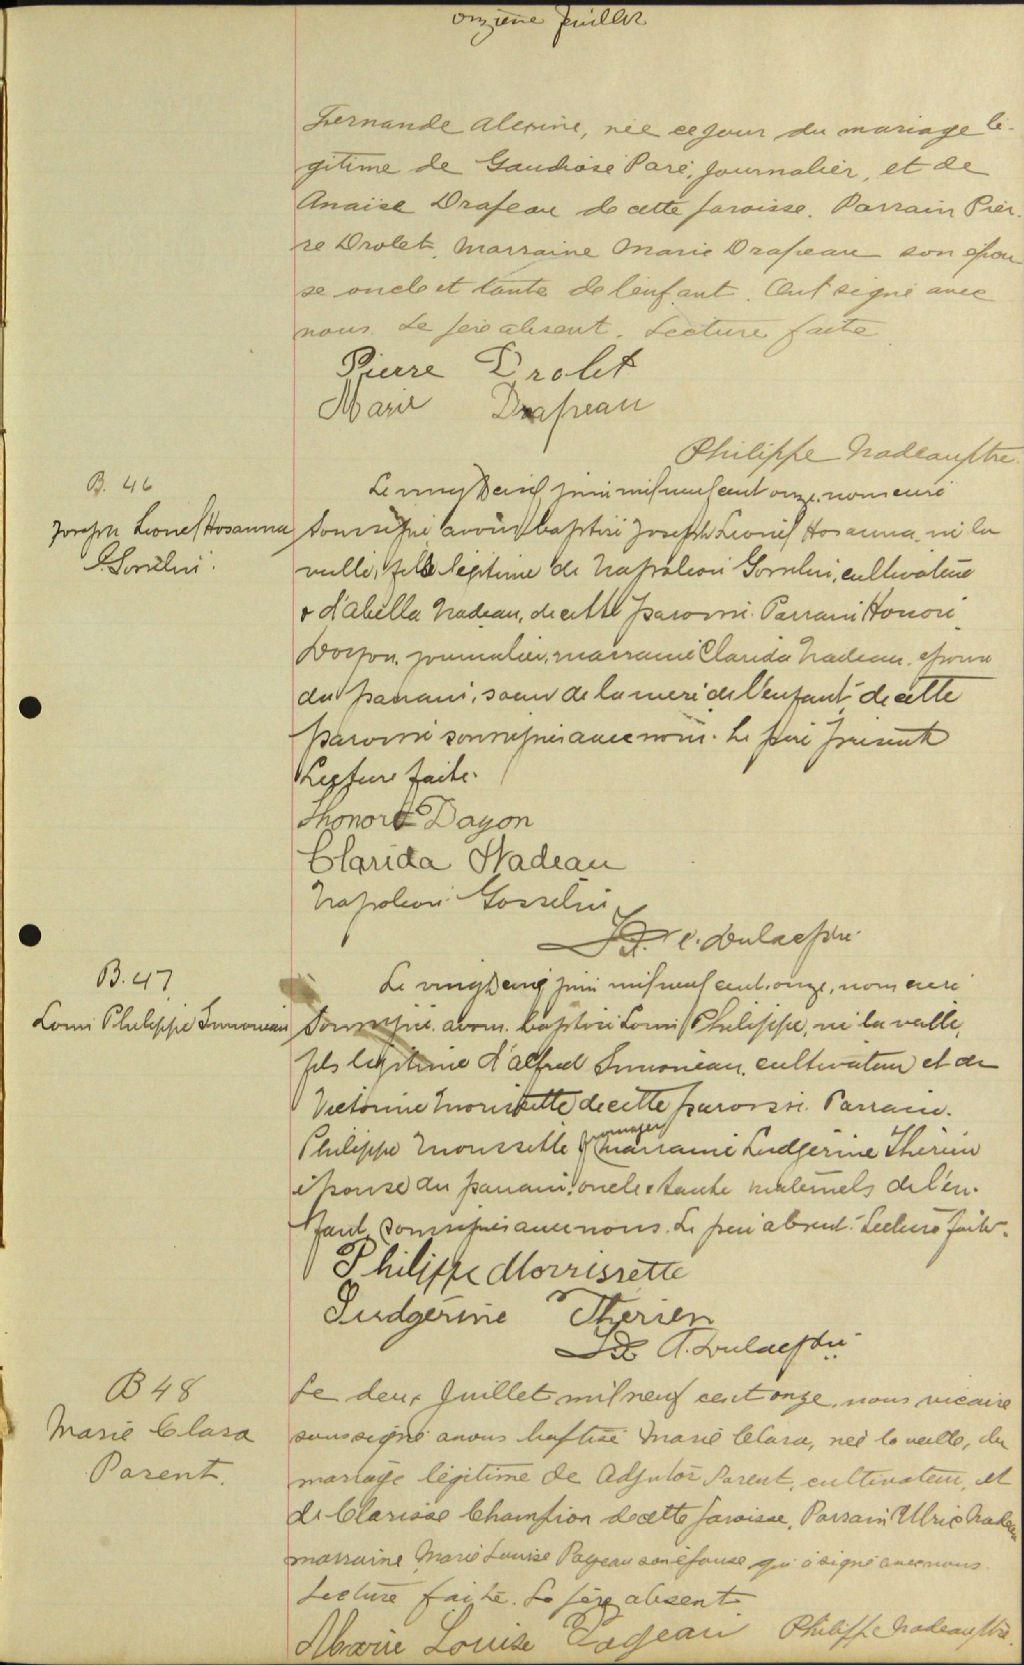 onzième feuillet
Fernande Alexine, née ce jour du mariage lé-
gitime de Gaudiose Paré, journalier, et de
Anaïse Drapeau de cette paroisse. Parrain Pier-
re Drolet, Marraine Marie Drapeau son épou
se oncle et tante de l'enfant. Ont signé avec
nous. Le père absent. Lecture faite
Pierre Drolet
Marie Drapeau
Philippe Nadeau ptre.
B. 46
Joseph Lionel Hosanna
Gosselin.
Le vingt cinq juin mil neuf cent onze, nous curé
soussigné avons baptisé Joseph Lionel Hosanna, né la
veille, fils légitime de Napoléon Gosselin, cultivateur
& d'Abella Nadeau, de cette paroisse. Parrain Honoré
Doyon, journalier, marraine Clarida Nadeau, épouse
du parrain, soeur de la mère de l'enfant, de cette
paroisse soussignés avec nous. Le père présent
Lecture faite.
Honoré Doyon
Clarida Nadeau
Napoléon Gosselin
B. 47
Louis Philippe Simoneau
Le vingt cinq juin mil neuf cent onze, nous curé
soussigné avons baptisé Louis Philippe, né la veille,
fils légitime d'Alfred Simoneau, cultivateur et de
Victorine Morissette de cette paroisse. Parrain
Philippe Moussette fromager, marraine Ludgérine Thérien
épouse du parrain, oncle & tante maternels de l'en-
fant, soussignés avec nous. Le père absent. Lecture faite.
Philippe Morrissette
Ludgérine Therien
B 48
Marie Clara
Parent.
Le deux Juillet mil neuf cent onze, nous vicaire
soussigné avons baptisé Marie Clara, née la veille, du
mariage légitime de Adjutor Parent, cultivateur, et
de Clarisse Champion de cette paroisse, Parrain Ulric Nadeau
marraine Marie Louise Pageau son épouse qui a signé avec nous.
Lecture faite. Le père absent
Marie Louise Pageau Philippe Nadeau ptre.